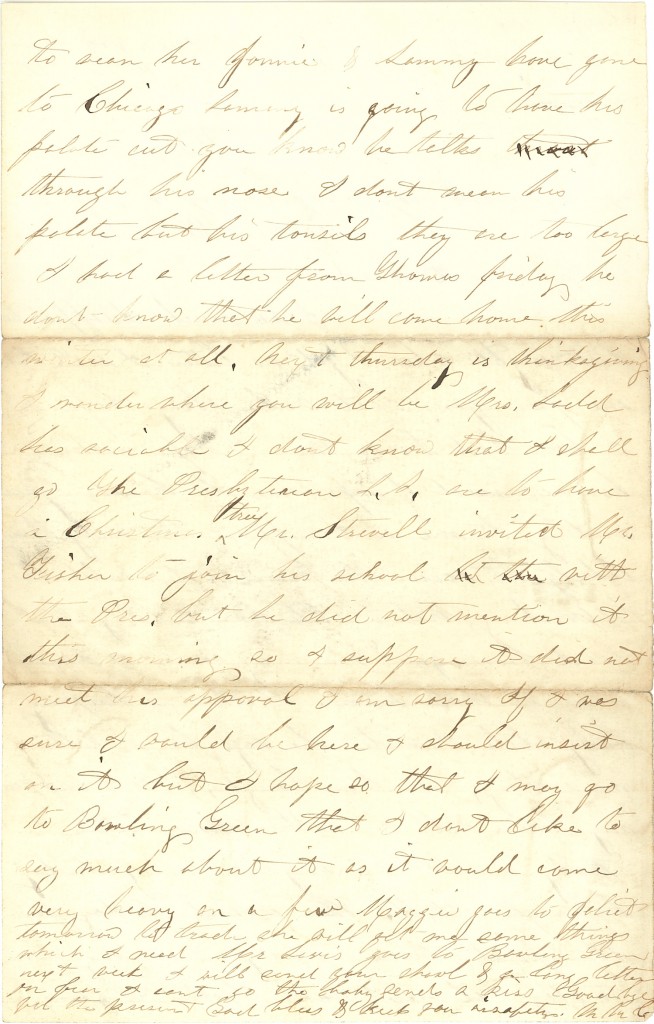 to wean her Fannie & Sammy have gone
to Chicago Sammy is going to have his
palate cut you know he talks
through his nose I dont mean his
palate but his tonsils they are too large
I had a letter from Thomas friday he
dont know that he will come home this
winter at all. next thursday is thinksgiving
I wonder where you will be Mrs. Ladd
has sociable I dont know that I shall
go The Presbyterian S.S. are to have
a Christmas tree Mr. Strevell invited Mr
Fisher to join his school with
the Pres. but he did not mention it
this morning so I suppose it did not
meet his appoval I am sorry If I was
sure I would be here I should insist
on it but I hope so that I may go
to Bowling Green that I dont like to
say much about it as it would come
very heavy on a few Maggie goes to Joliet
tomorrow to teach she will get me some things
which I need Mr Lewis goes to Bowling Green
next week I will send your shawl & a long letter
on fear I cant go the baby sends a kiss Good bye
for the present God bless & keep you